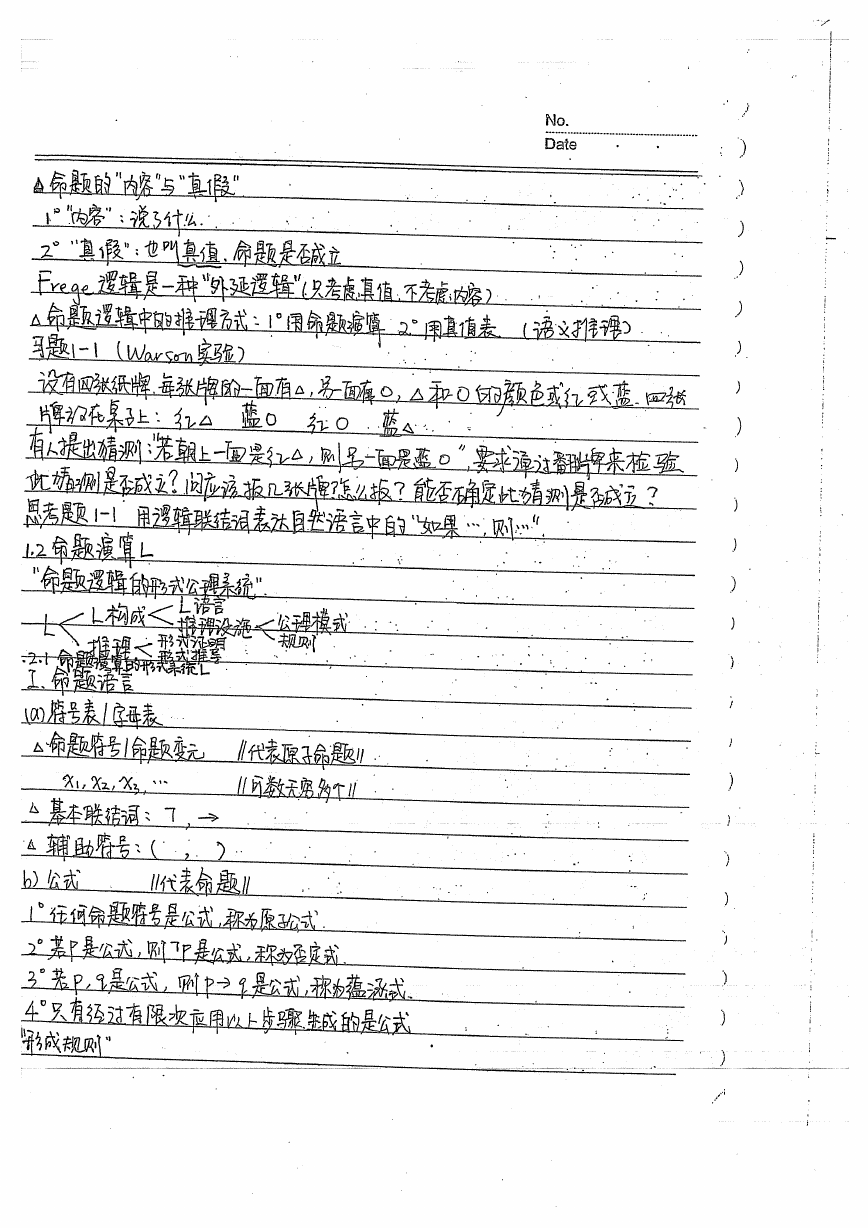 No.
Date
△命题的"内容"与"真假"
1°"内容":说了什么.
2° "真假":也叫真值.命题是否成立
Frege 逻辑是一种"外延逻辑"(只考虑真值.不考虑内容)
△命题逻辑中的推理方式:1°用命题演算 2°用真值表 (语义推理)
习题1-1 (Warson实验)
设有四张纸牌.每张牌的一面有△,另一面有○,△和○的颜色或红或蓝.四张
牌放在桌子上: 红△ 蓝○ 红○ 蓝△
有人提出猜测:"若朝上一面是红△,则另一面是蓝○",要求通过翻牌来检验
此猜测是否成立?问应该扳几张牌?怎么扳?能否确定此猜测是否成立?
思考题1-1 用逻辑联结词表达自然语言中的"如果…,则…".
1.2 命题演算L
"命题逻辑的形式公理系统"
L
L构成
L语言
推理设施
公理模式
规则
推理
形式证明
形式推导
.2.1 命题演算的形式系统L
I. 命题语言
(a)符号表/字母表
△命题符号/命题变元 //代表原子命题//
x₁,x₂,x₃,… //可数无穷多个//
△ 基本联结词:¬,→
△ 辅助符号:( , )
b)公式 //代表命题//
1°任何命题符号是公式,称为原子公式.
2°若p是公式,则¬p是公式,称为否定式.
3°若p,q是公式,则p→q是公式,称为蕴涵式.
4°只有经过有限次应用以上步骤生成的是公式
"形成规则"